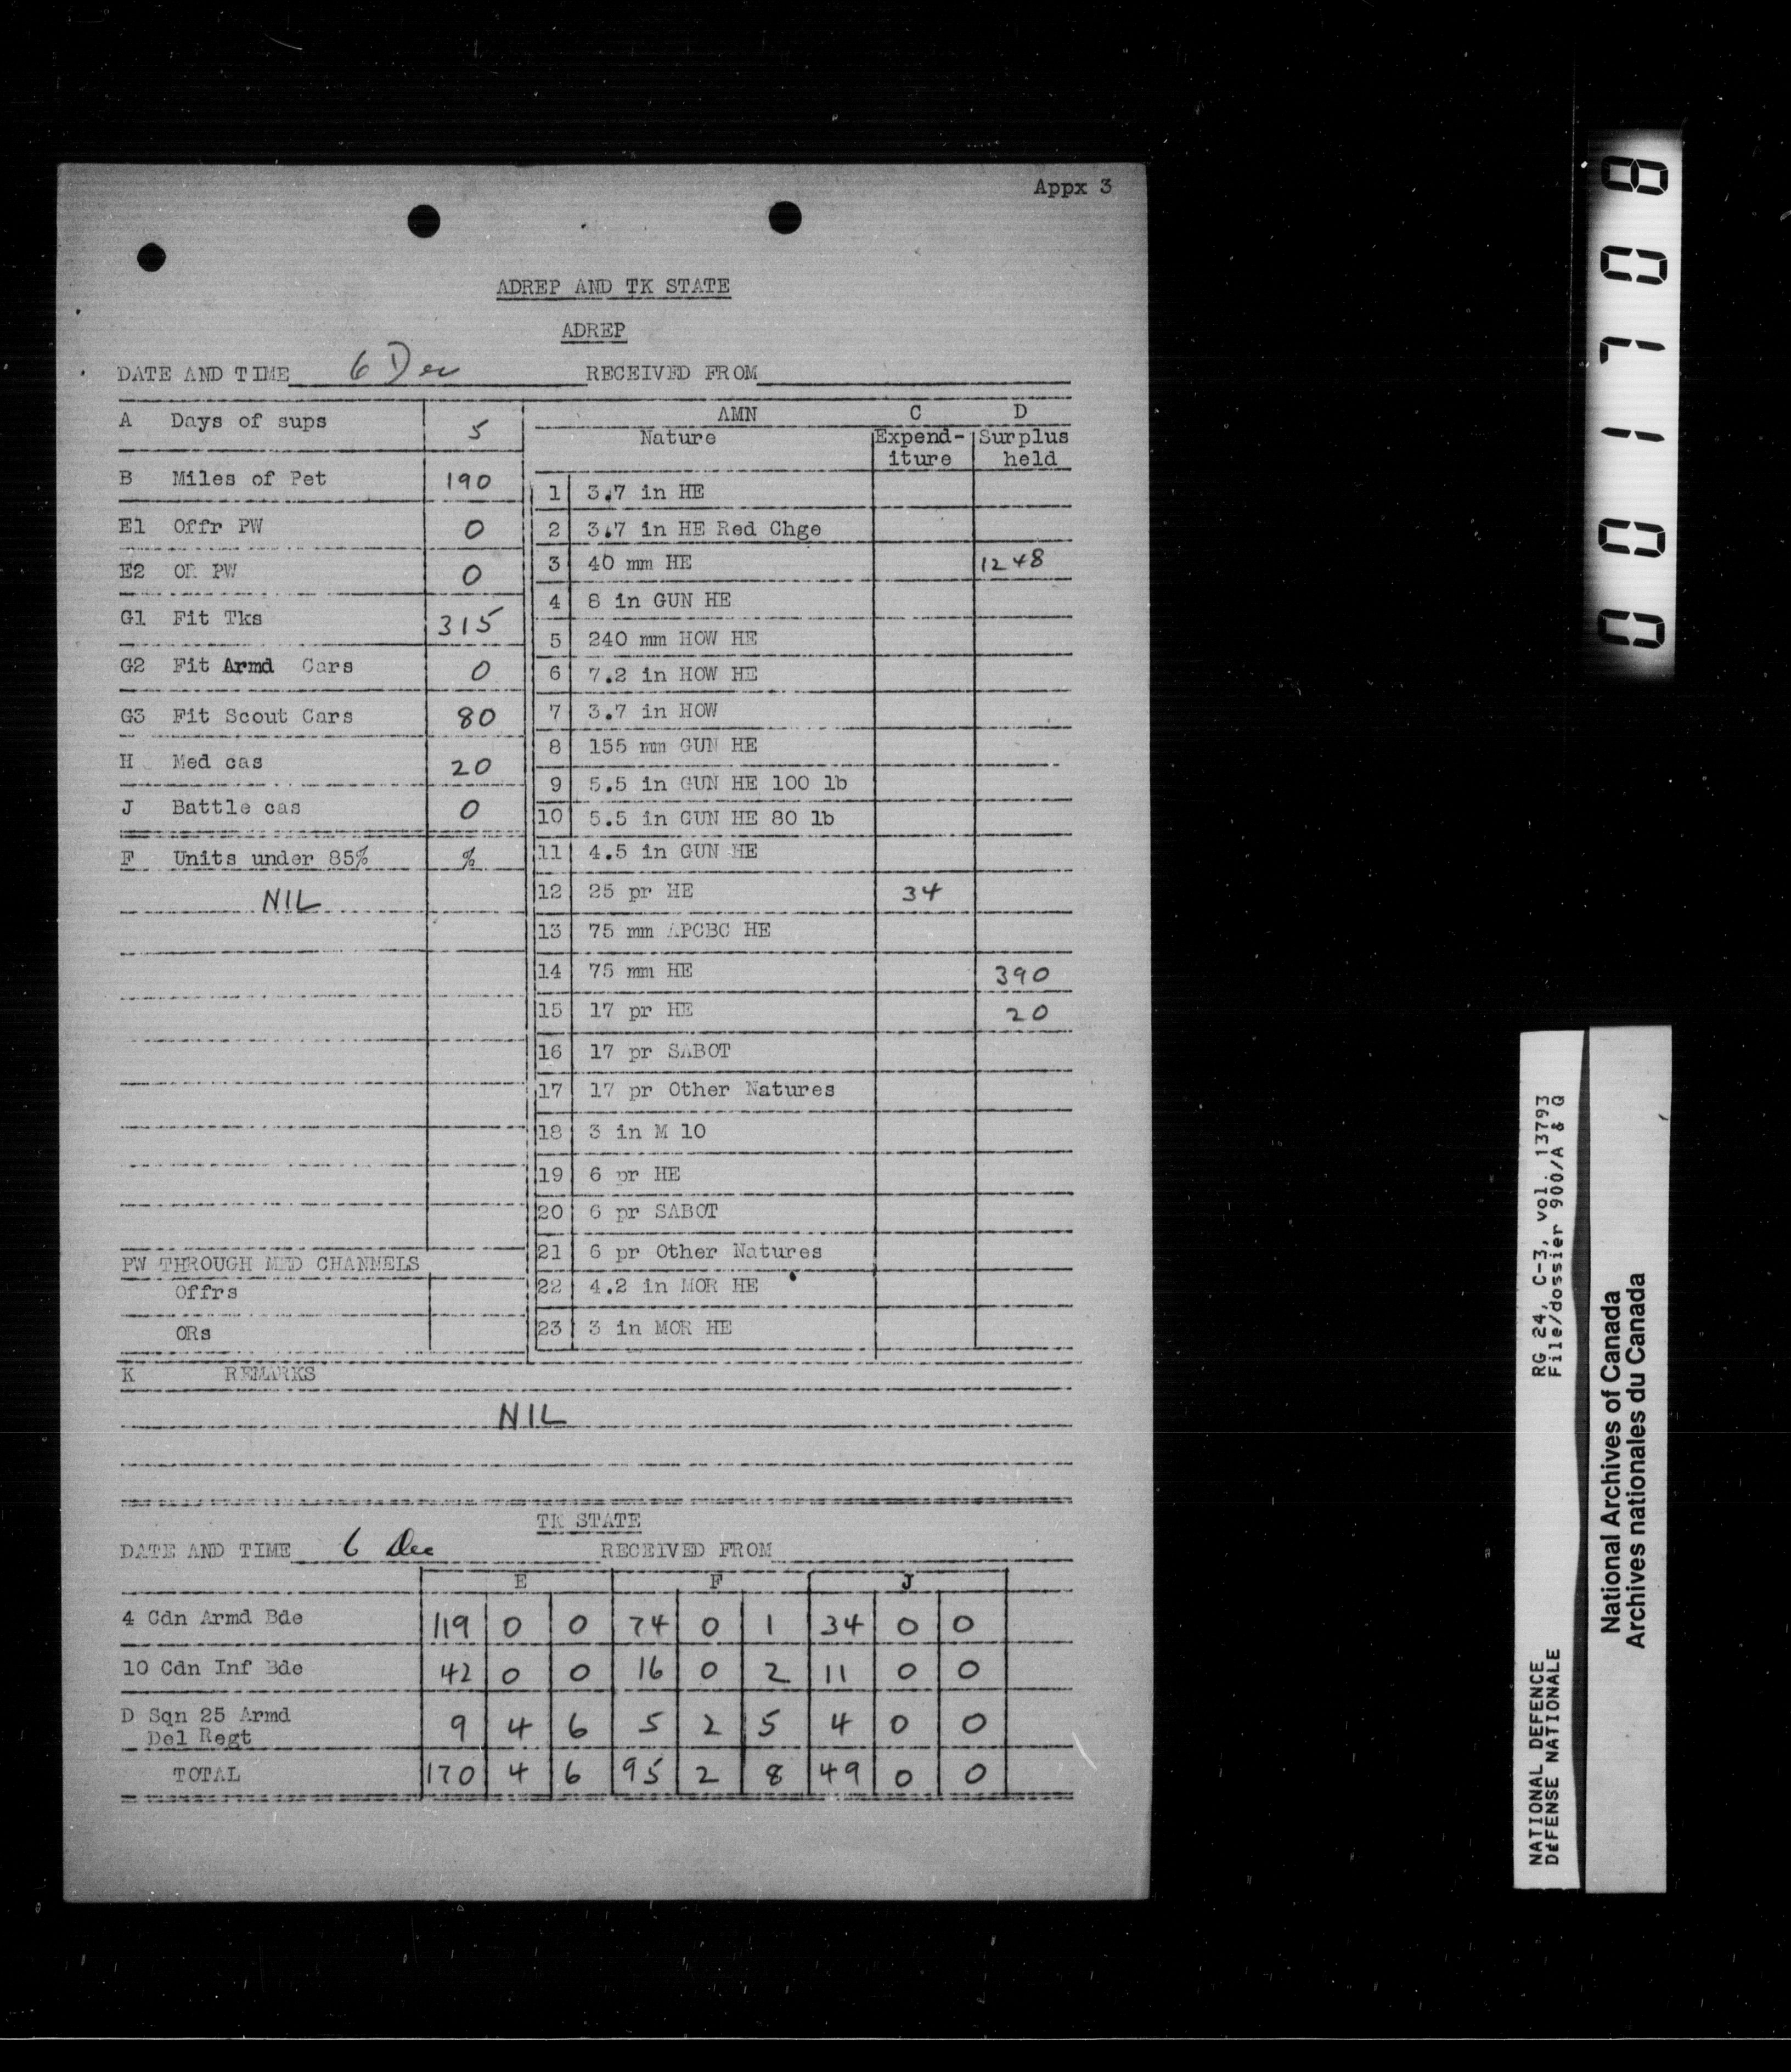 Appx 3
ADREP AND TK STATE
ADREP
DATE AND TIME 6 Dec RECEIVED FROM
A Days of sups 5
B Miles of Pet 190
E1 Offr PW 0
E2 OR PW 0
G1 Fit Tks 315
G2 Fit Armd Cars 0
G3 Fit Scout Cars 80
H Med cas 20
J Battle cas 0
F Units under 85% %
NIL
PW THROUGH MED CHANNELS
Offrs
ORs
AMN C D
Nature Expend- Surplus
iture held
1 3.7 in HE
2 3.7 in HE Red Chge
3 40 mm HE 1248
4 8 in GUN HE
5 240 mm HOW HE
6 7.2 in HOW HE
7 3.7 in HOW
8 155 mm GUN HE
9 5.5 in GUN HE 100 lb
10 5.5 in GUN HE 80 lb
11 4.5 in GUN HE
12 25 pr HE 34
13 75 mm APCBC HE
14 75 mm HE 390
15 17 pr HE 20
16 17 pr SABOT
17 17 pr Other Natures
18 3 in M 10
19 6 pr HE
20 6 pr SABOT
21 6 pr Other Natures
22 4.2 in MOR HE
23 3 in MOR HE
K REMARKS
NIL
TK STATE
DATE AND TIME 6 Dec RECEIVED FROM
E F J
4 Cdn Armd Bde 119 0 0 74 0 1 34 0 0
10 Cdn Inf Bde 42 0 0 16 0 2 11 0 0
D Sqn 25 Armd
Del Regt 9 4 6 5 2 5 4 0 0
TOTAL 170 4 6 95 2 8 49 0 0
001708
RG 24, C-3, vol. 13793
File/dossier 900/A & Q
NATIONAL DEFENCE
DéFENSE NATIONALE
National Archives of Canada
Archives nationales du Canada